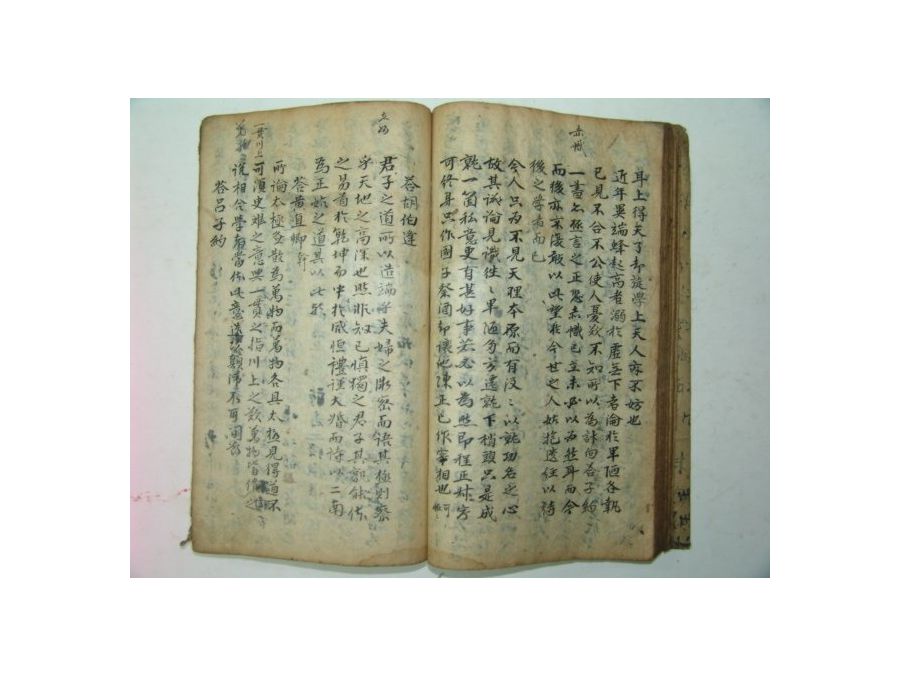 赤幟
耳上得天了却旋學上天人亦不妨也
近年異端蜂起高者溺於虛無下者淪於卑陋各執
已見不合不公使人憂歎不知所以為計向答子約
一書亦極言之正恐赤幟已立未必以為然耳而今
而後亦不復敢以此望於今世之人姑抱遺經以待
後之學者而已
今人只為不見天理本原而有汲〻以就功名之心
故其議論見識往〻卑陋多方遷就下梢頭只是成
就一箇私意更有甚好事若必以為然即程正叔方
可終身只作國子祭酒却讓他陳正己作宰相也可
答胡伯逢
君子之道所以造端乎夫婦之微密而語其極則察
乎天地之高深也然非知已慎獨之君子其孰能体
之易首於乾坤而中於咸恒禮謹大婚而詩以二南
為正始之道其以此歟
答黃直卿榦
所論太極散為萬物而萬物各具太極見得道不
可須臾離之意與一貫之指川上之歎萬物皆備之
說相合學者當体此意
答呂子約
一貫川上